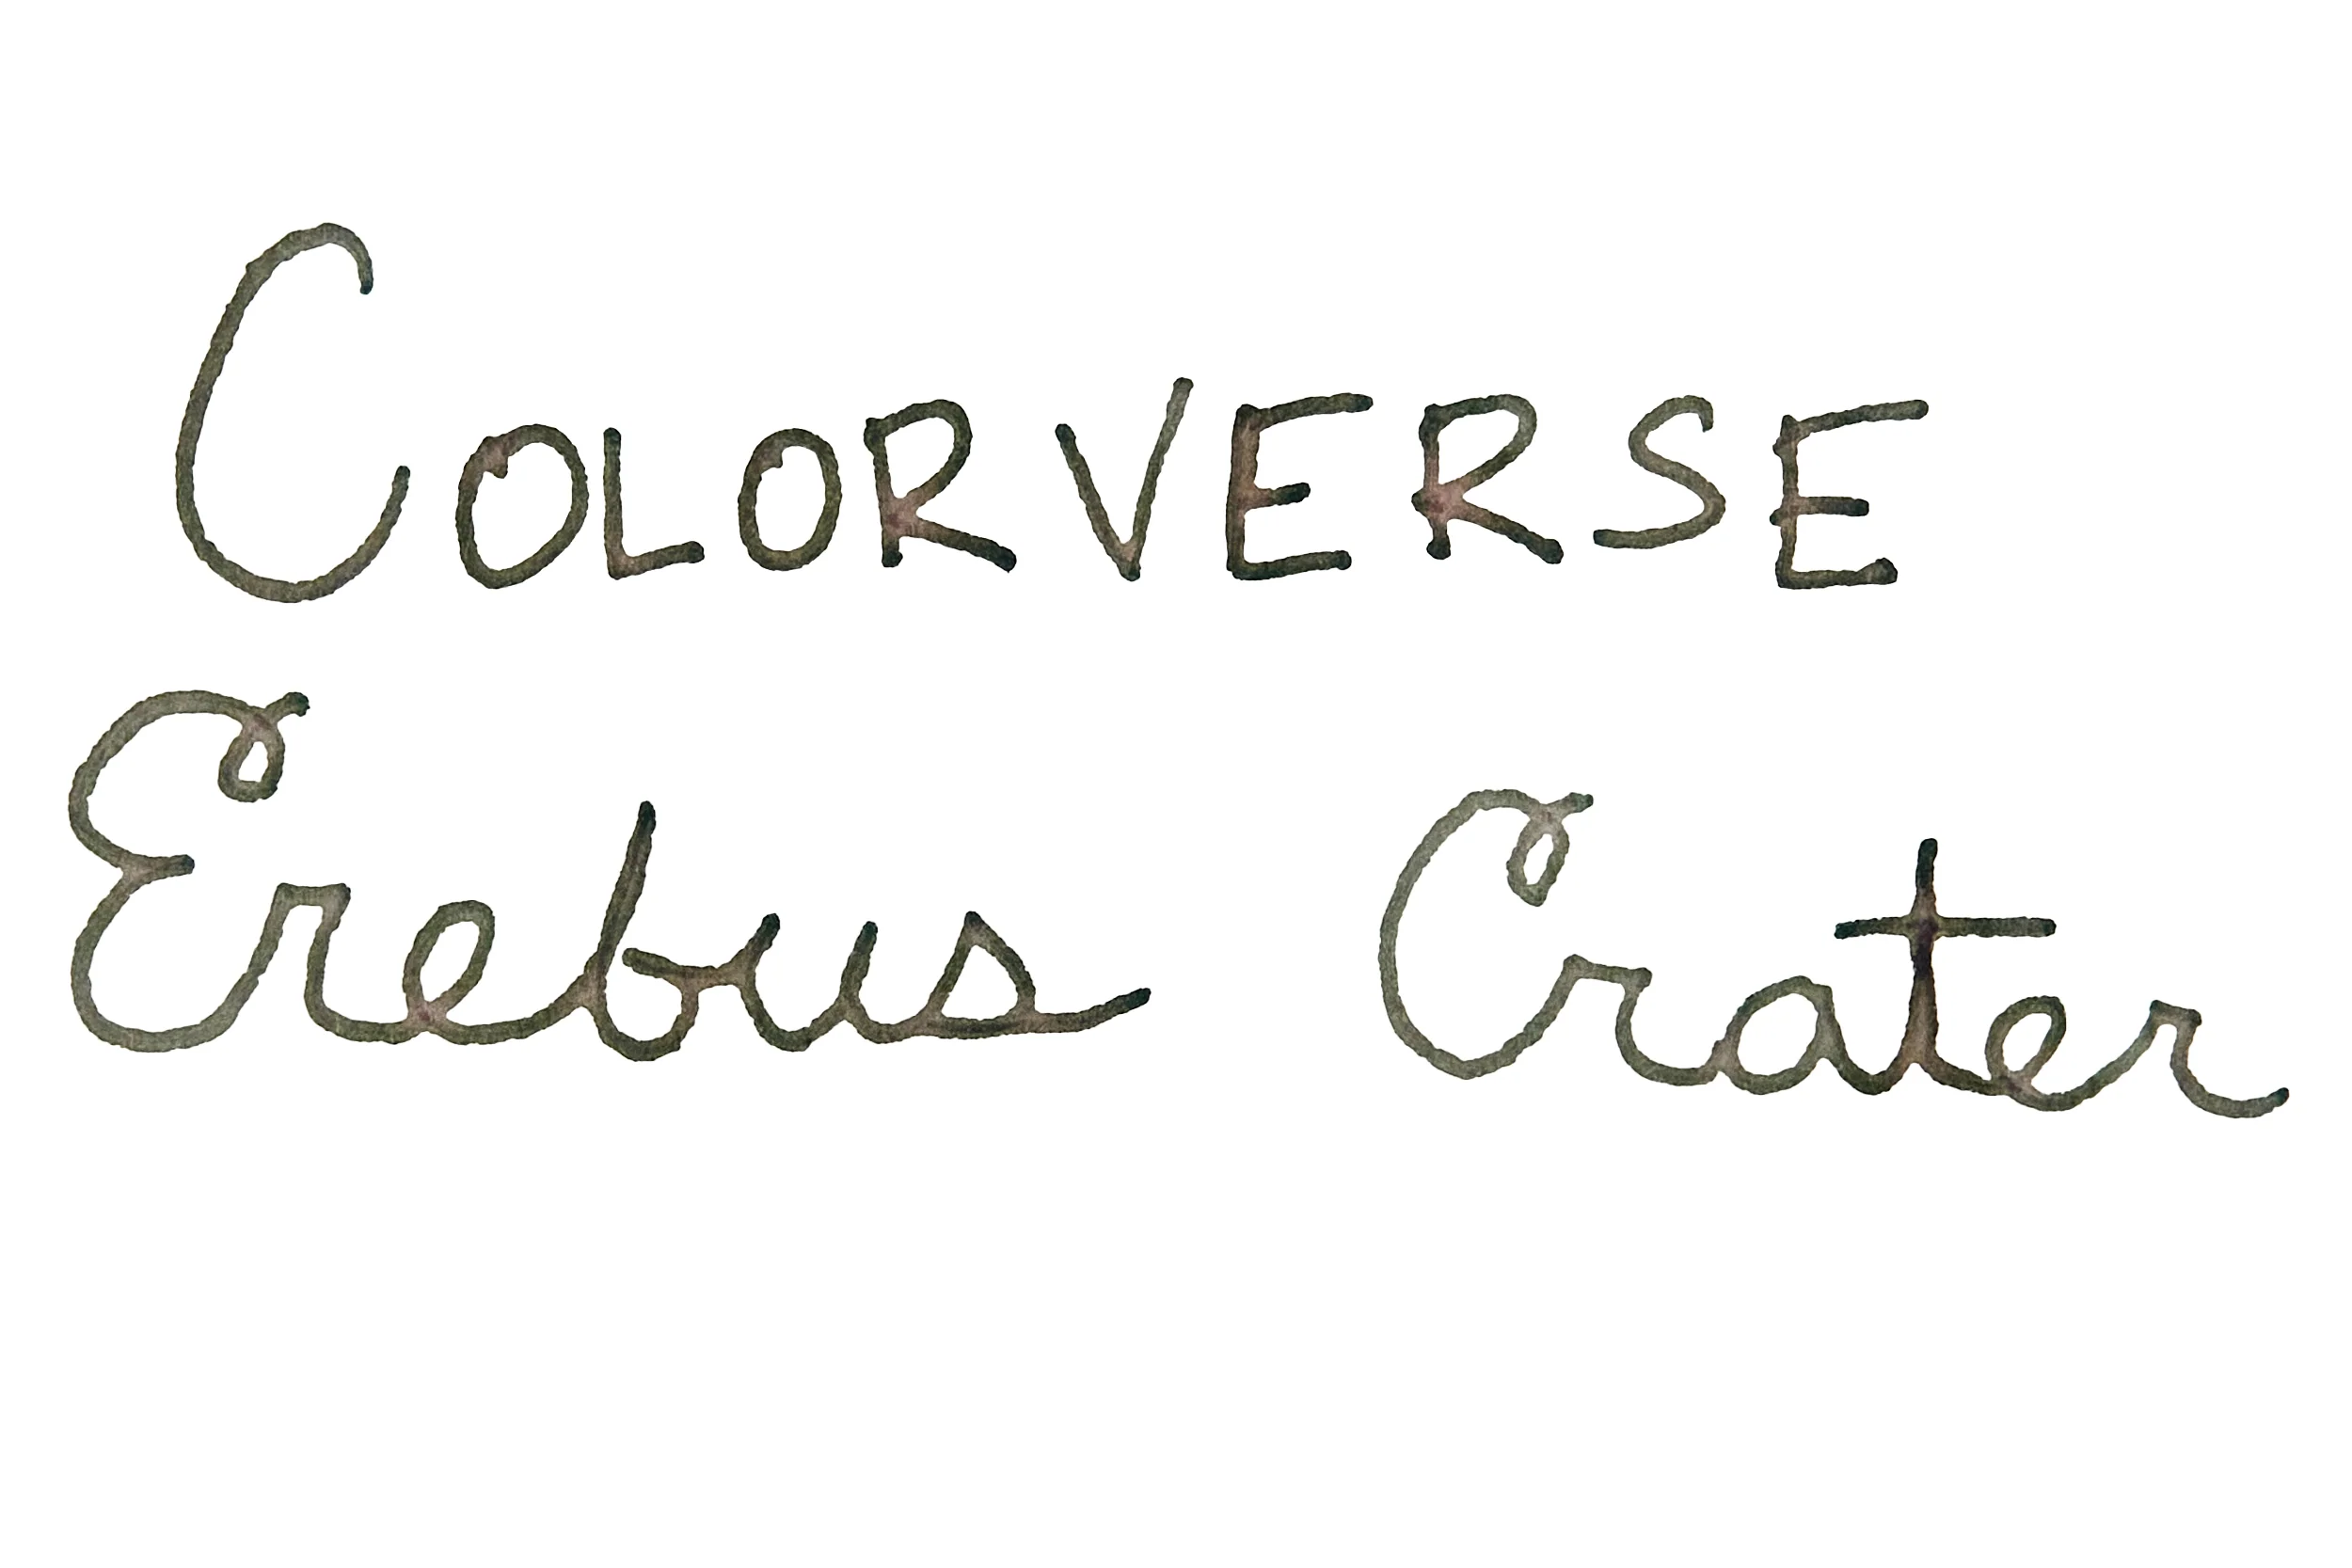 COLORVERSE
Erebus Crater